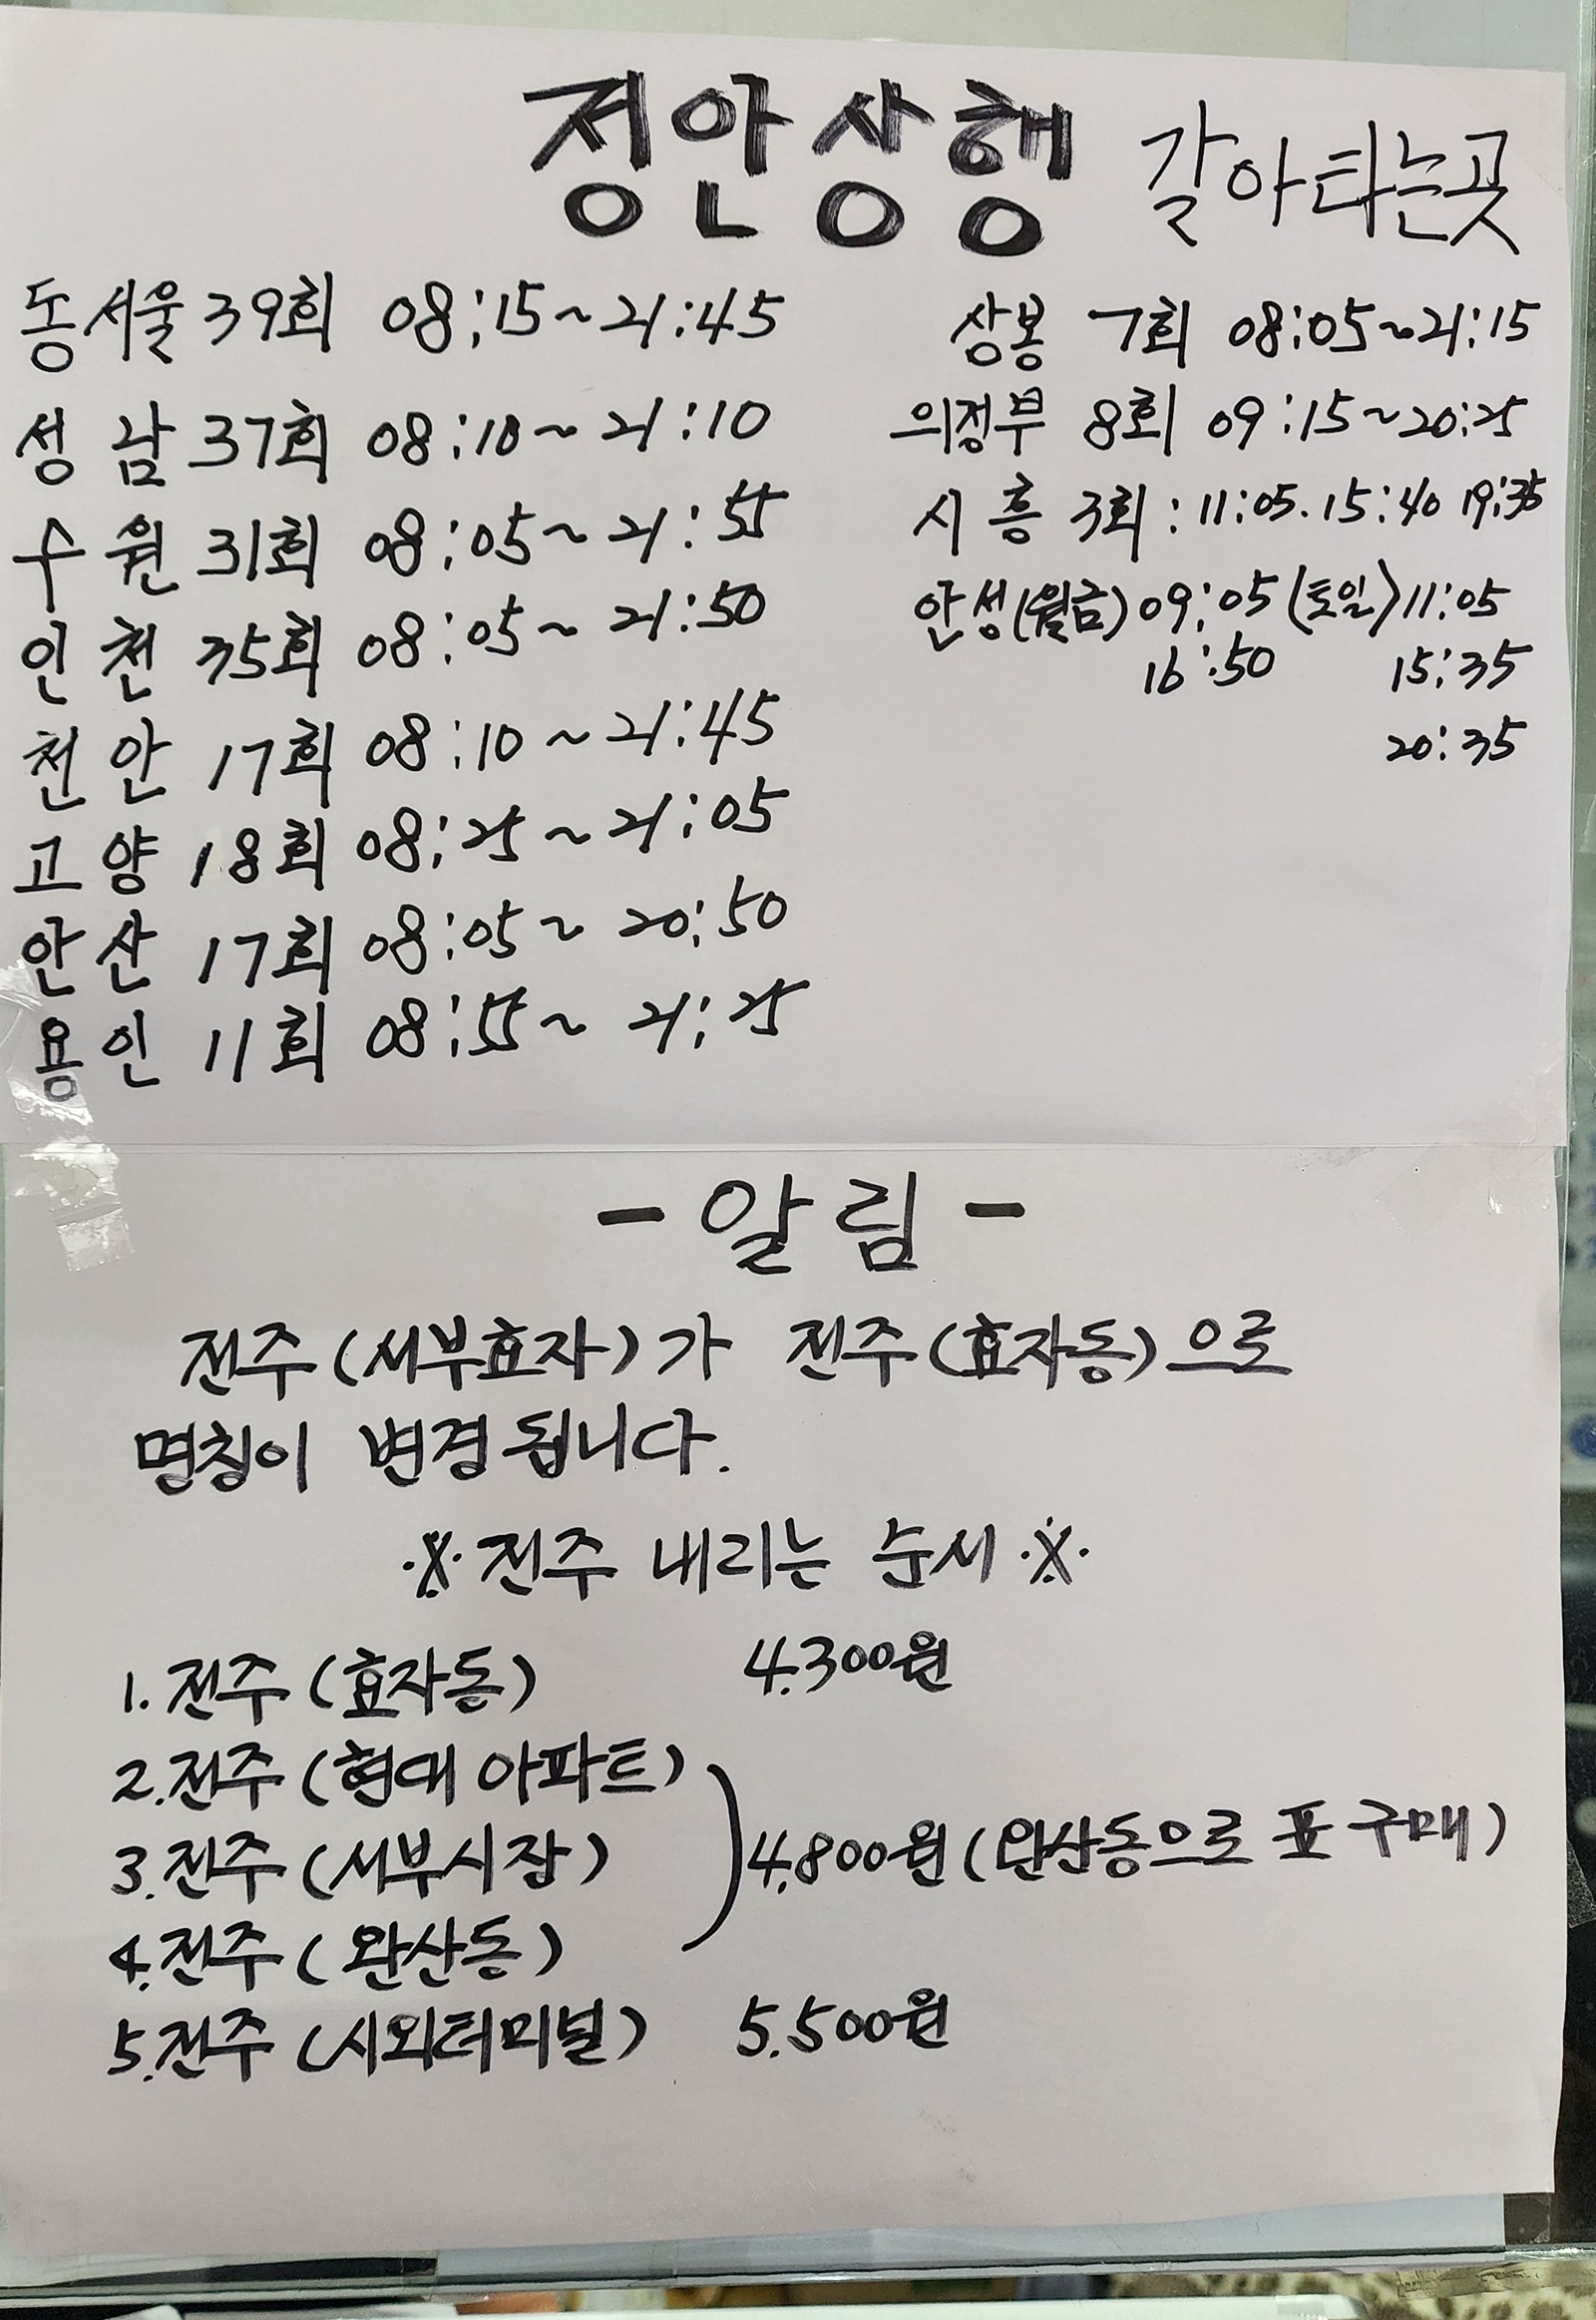 정안상행 갈아타는곳
동서울 39회 08:15~21:45
성남 37회 08:10~21:10
수원 31회 08:05~21:55
인천 35회 08:05~21:50
천안 17회 08:10~21:45
고양 18회 08:25~21:05
안산 17회 08:05~20:50
용인 11회 08:55~21:25
상봉 7회 08:05~21:15
의정부 8회 09:15~20:25
시흥 3회 : 11:05. 15:40 19:35
안성(월금) 09:05 (토일) 11:05
16:50 15:35
20:35
- 알림 -
전주(서부효자)가 전주(효자동)으로
명칭이 변경됩니다.
※ 전주 내리는 순서 ※
1. 전주(효자동) 4.300원
2. 전주(현대 아파트)
3. 전주(서부시장) 4.800원 (완산동으로 표 구매)
4. 전주(완산동)
5. 전주(시외터미널) 5.500원